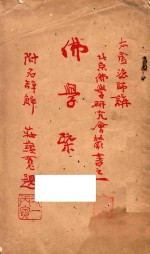 太虛法師講
北京佛學研究會叢書之一
佛學槩
附名辭解
莊蘊寬題